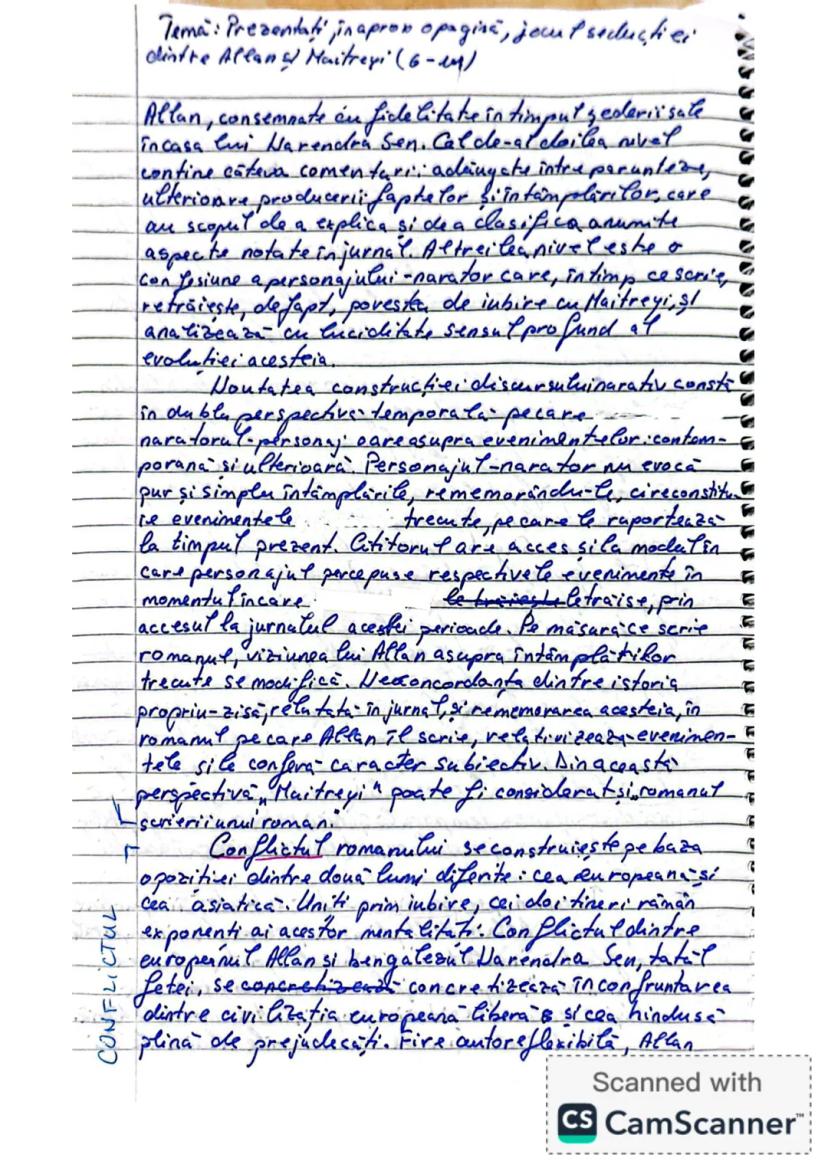 Temă: Prezentați, în aprox o pagină, jocul seducției
dintre Allan și Maitreyi (6-14)
Allan, consemnate cu fidelitate în timpul șederii sale
în casa lui Narendra Sen. Cel de-al doilea nivel
conține câteva comentarii adăugate între paranteze,
ulterioare producerii faptelor și întâmplărilor, care
au scopul de a explica și de a clasifica anumite
aspecte notate în jurnal. Al treilea nivel este o
confesiune a personajului-narator care, în timp ce scrie,
retrăiește, de fapt, povestea de iubire cu Maitreyi, și
analizează cu luciditate sensul profund al
evoluției acesteia.
Noutatea construcției discursului narativ constă
în dubla perspectivă temporală pe care
naratorul-personaj o are asupra evenimentelor: contem-
porană și ulterioară. Personajul-narator nu evocă
pur și simplu întâmplările, rememorându-le, ci reconstitu-
ie evenimentele trecute, pe care le raportează
la timpul prezent. Cititorul are acces și la modul în
care personajul percepuse respectivele evenimente în
momentul în care le trăiește le trăise, prin
accesul la jurnalul acestei perioade. Pe măsură ce scrie
romanul, viziunea lui Allan asupra întâmplărilor
trecute se modifică. Neconcordanța dintre istoria
propriu-zisă, relatată în jurnal, și rememorarea acesteia, în
romanul pe care Allan îl scrie, relativizează evenimen-
tele și le conferă caracter subiectiv. Din această
perspectivă „Maitreyi" poate fi considerat și „romanul
scrierii unui roman."
Conflictul romanului se construiește pe baza
opoziției dintre două lumi diferite: cea europeană și
cea asiatică. Uniți prin iubire, cei doi tineri rămân
exponenți ai acestor mentalități. Conflictul dintre
europeanul Allan și bengalezul Narendra Sen, tatăl
fetei, se concretizează concretizează în confruntarea
dintre civilizația europeană liberă și cea hindusă
plină de prejudecăți. Fire autoreflexibilă, Allan
CONFLICTUL
Scanned with
CS CamScanner™